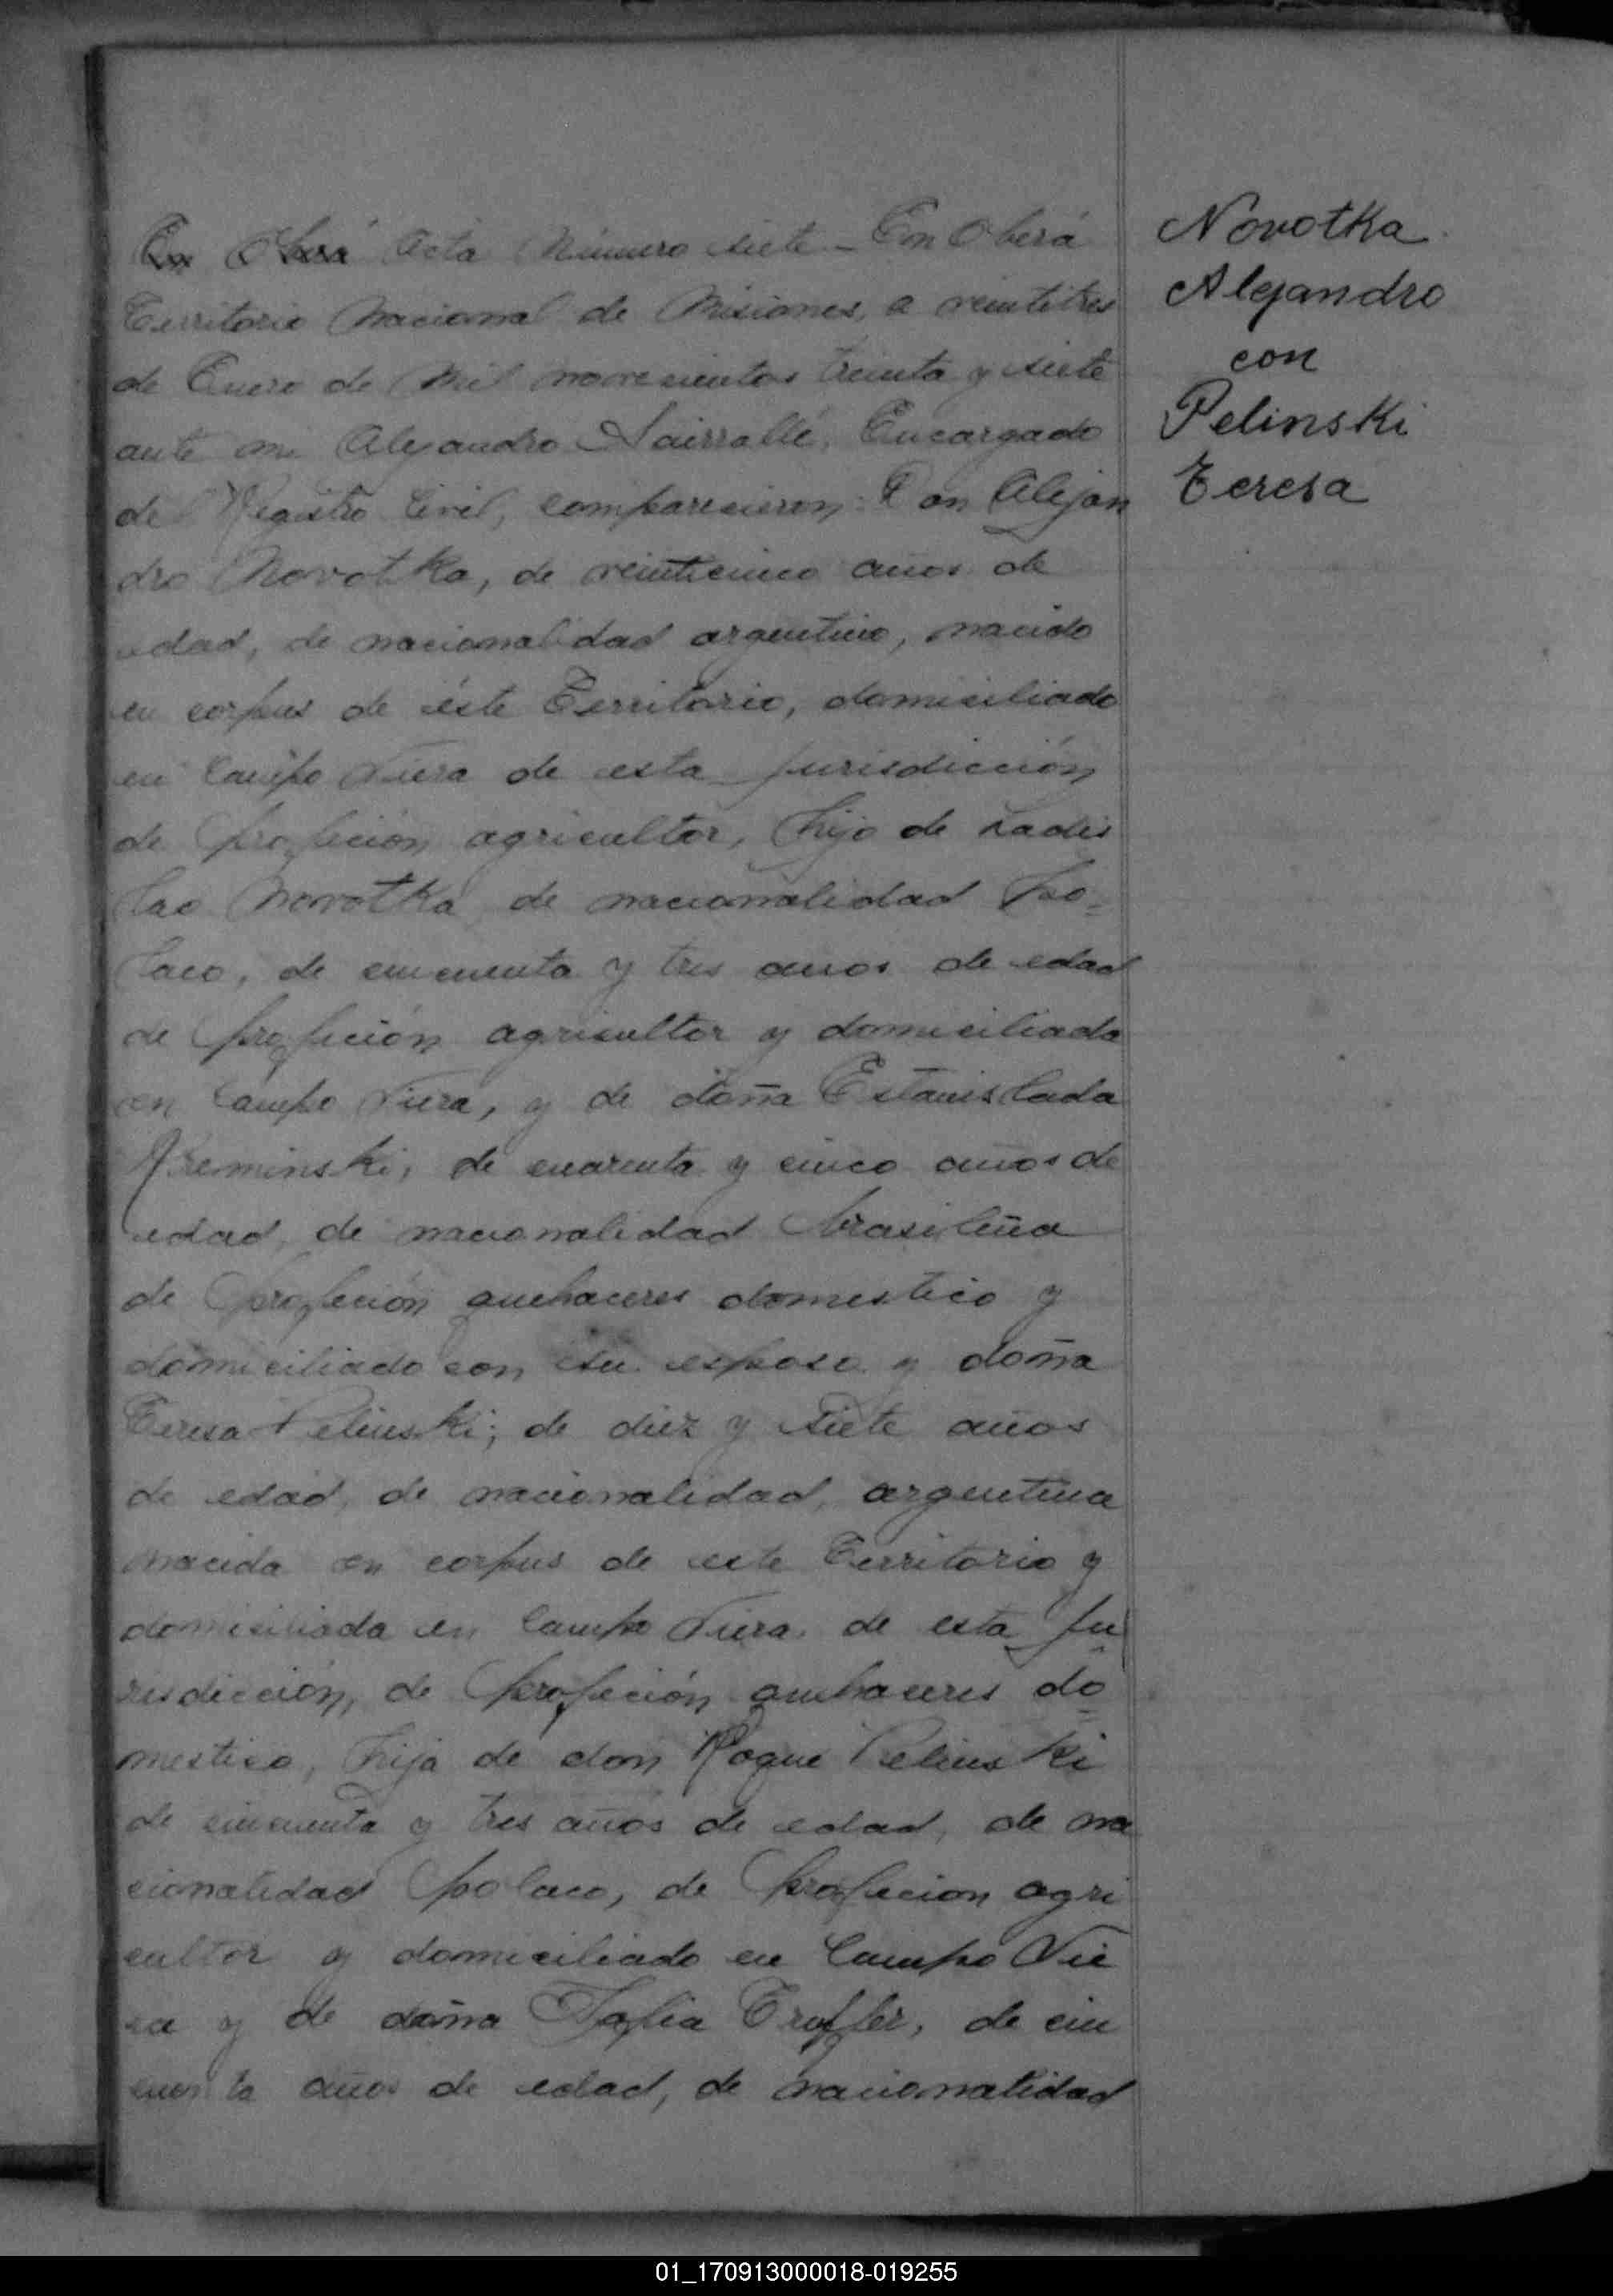 En Oberá Acta Número siete - En Oberá
Territorio Nacional de Misiones, a veintitres
de Enero de Mil novecientos treinta y siete
ante mi Alejandro Encargado
del Registro Civil, comparecieron: Don Alejan
dro Novotka, de veinticinco años de
edad, de nacionalidad argentino, nacido
en corpus de éste Territorio, domiciliado
en Campo Viera de esta jurisdicción
de profeción agricultor, hijo de Ladis
lao Novotka de nacionalidad po=
laco, de cincuenta y tres años de edad
de profeción agricultor y domiciliado
en Campo Viera, y de doña Estanislada
de cuarenta y cinco años de
edad, de nacionalidad brasileña
de profeción quehaceres domestico y
domiciliado con su esposo y doña
Teresa Pelinski; de diez y siete años
de edad, de nacionalidad, argentina
nacida en corpus de este Territorio y
domiciliada en Campo Viera de esta ju
risdicción, de profeción quehaceres do=
mestico, hija de don Roque Pelinski
de cincuenta y tres años de edad, de na
cionalidad polaco, de profecion agri
cultor y domiciliado en Campo Vie
ra y de doña de cin
cuenta años de edad, de nacionalidad
Novotka
Alejandro
con
Pelinski
Teresa
01_170913000018-019255